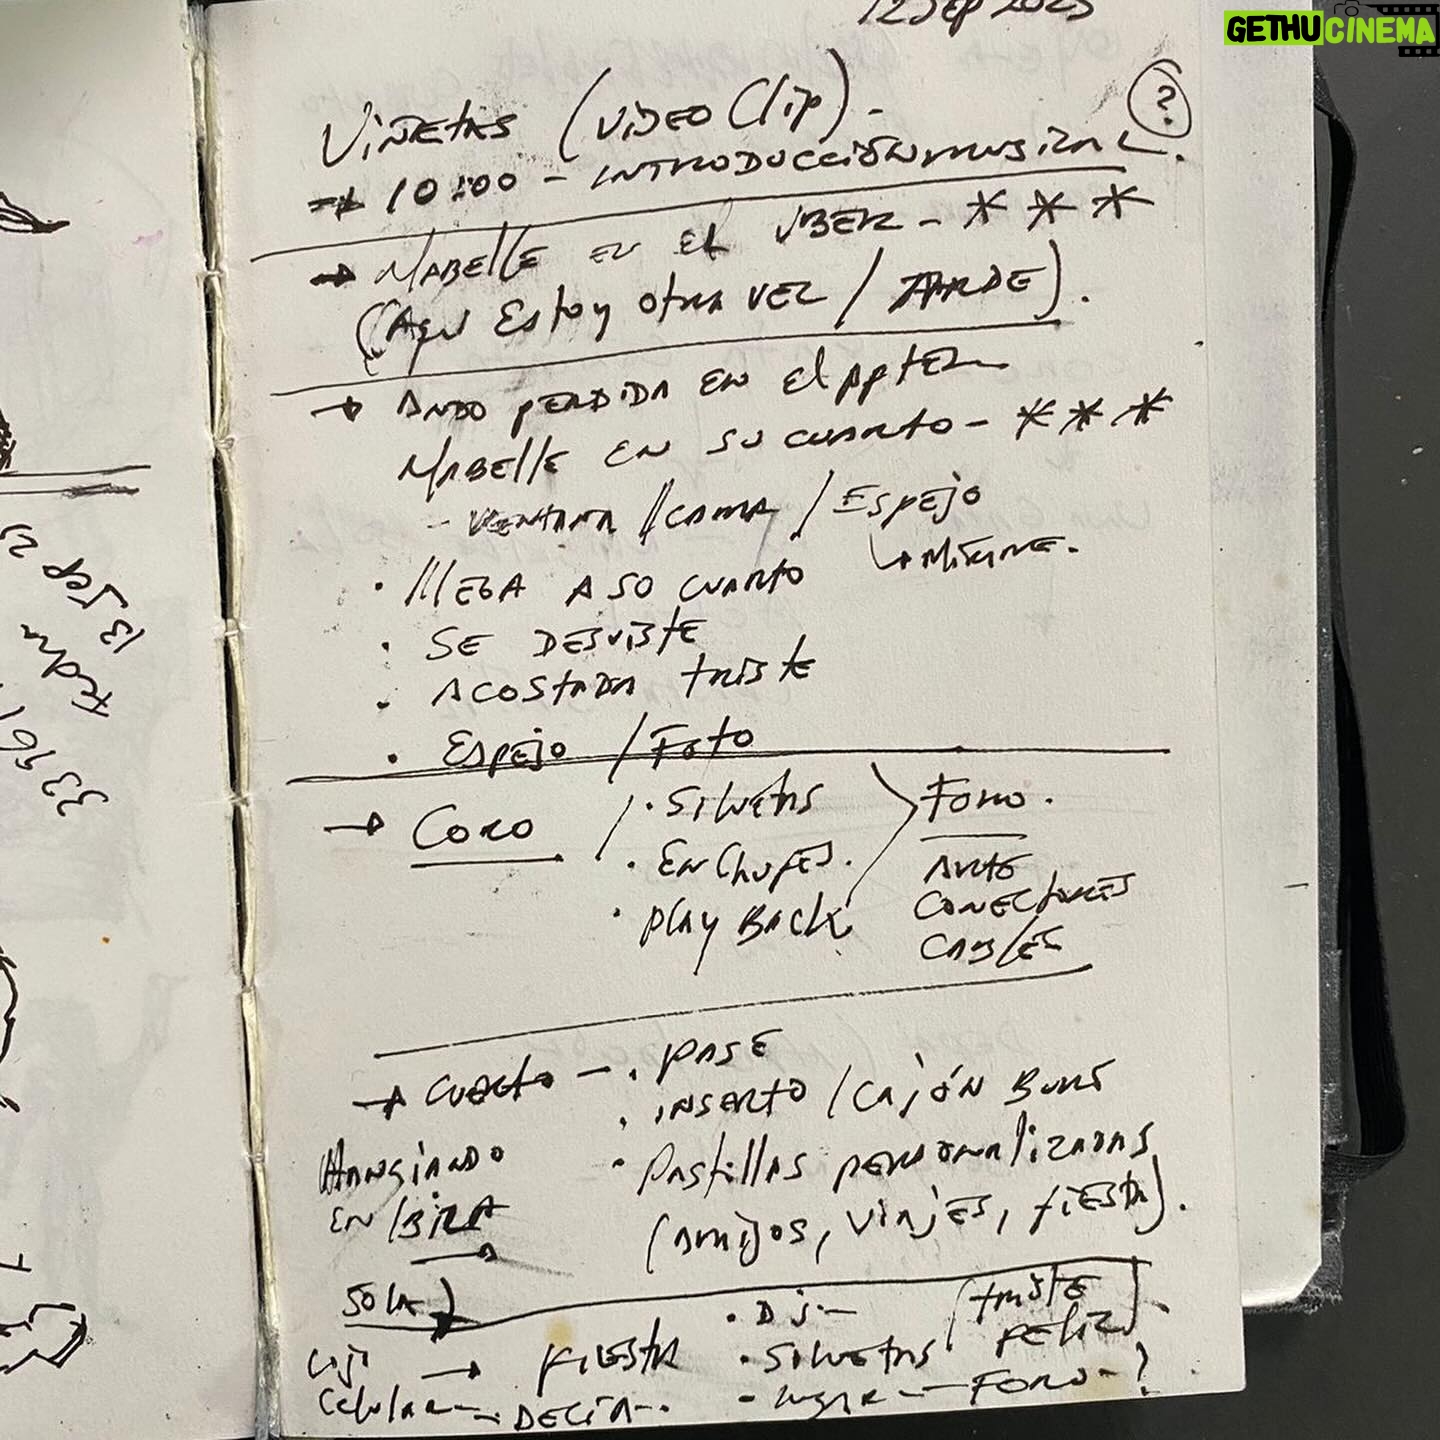 GETHUCINEMA
12 SEP 2023
?
VIÑETAS (VIDEO Clip).-
→ 10:00 - INTRODUCCIÓN MUSICAL.
→ MABELLE EN EL UBER - * * *
(AQUI ESTOY OTRA VEZ / TARDE).
→ ANDO PERDIDA EN El
MABELLE EN SU CUARTO - * * *
- VENTANA // CAMA / ESPEJO
↳ MÍRAME.
· LLEGA A SU CUARTO
· SE DESVISTE
· ACOSTADA TRISTE
· ESPEJO / FOTO
→ CORO / · SILUETAS > FORO.
· ENCHUFES. / ARTE
· PLAY BACK CONECTORES
CABLES
→ CUARTO - · PASE
· INSERTO / CAJÓN BURÓ
· PASTILLAS PERSONALIZADAS
(AMIGOS, VIAJES, FIESTA).
EN
SOLA)
· DJ.- (TRISTE
FELIZ).
→ FIESTA · SILUETAS
CELULAR - DECÍA-. - FORO-?
13 SEP 23